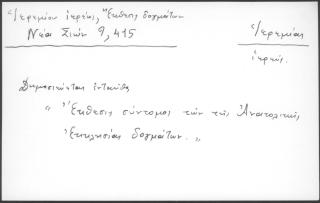 Ἱερεμίου ἱερέως, Ἔκθεσις δογμάτων
Νέα Σιών 9, 415
Ἱερεμίας
ἱερεύς.
Δημοσιεύεται ἐνταῦθα
"Ἔκθεσις σύντομος τῶν τῆς Ἀνατολικῆς
Ἐκκλησίας δογμάτων."